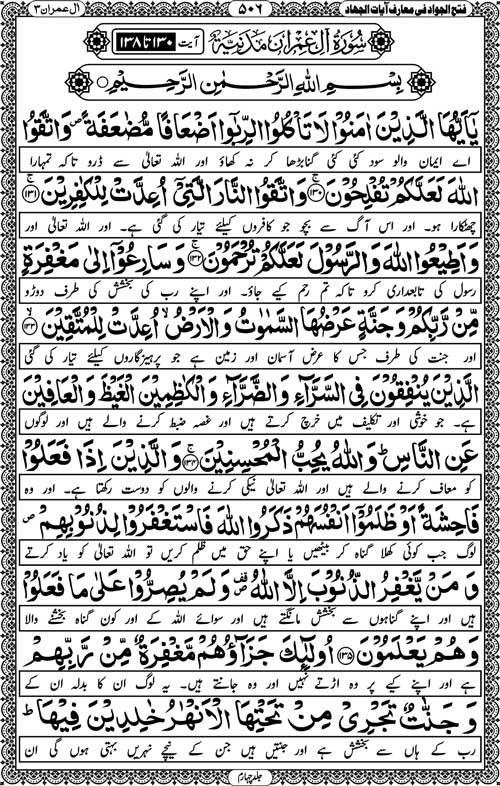 فتح الجواد فی معارف آیات الجهاد
۵۰۶
آل عمران ۳
سُوْرَةُ اٰلِ عِمْرَانَ مَدَنِيَّةٌ آیت ۱۳۰ تا ۱۳۸
بِسْمِ اللهِ الرَّحْمٰنِ الرَّحِيْمِ
يٰۤاَيُّهَا الَّذِيْنَ اٰمَنُوْا لَا تَاْكُلُوا الرِّبٰۤوا اَضْعَافًا مُّضٰعَفَةً ۪ وَّاتَّقُوا
اے ایمان والو سود کئی کئی گنا بڑھا کر نہ کھاؤ اور اللہ تعالیٰ سے ڈرو تاکہ تمہارا
اللهَ لَعَلَّكُمْ تُفْلِحُوْنَ ﴿۱۳۰﴾ وَاتَّقُوا النَّارَ الَّتِيْۤ اُعِدَّتْ لِلْكٰفِرِيْنَ ﴿۱۳۱﴾
چھٹکارا ہو۔ اور اس آگ سے بچو جو کافروں کیلئے تیار کی گئی ہے۔ اور اللہ تعالیٰ اور
وَاَطِيْعُوا اللهَ وَالرَّسُوْلَ لَعَلَّكُمْ تُرْحَمُوْنَ ﴿۱۳۲﴾ وَسَارِعُوْۤا اِلٰى مَغْفِرَةٍ
رسول کی تابعداری کرو تاکہ تم رحم کیے جاؤ۔ اور اپنے رب کی بخشش کی طرف دوڑو
مِّنْ رَّبِّكُمْ وَجَنَّةٍ عَرْضُهَا السَّمٰوٰتُ وَالْاَرْضُ ۙ اُعِدَّتْ لِلْمُتَّقِيْنَ ﴿۱۳۳﴾
اور جنت کی طرف جس کا عرض آسمان اور زمین ہے جو پرہیزگاروں کیلئے تیار کی گئی
الَّذِيْنَ يُنْفِقُوْنَ فِي السَّرَّآءِ وَالضَّرَّآءِ وَالْكٰظِمِيْنَ الْغَيْظَ وَالْعَافِيْنَ
ہے۔ جو خوشی اور تکلیف میں خرچ کرتے ہیں اور غصہ ضبط کرنے والے ہیں اور لوگوں
عَنِ النَّاسِ ؕ وَاللهُ يُحِبُّ الْمُحْسِنِيْنَ ﴿۱۳۴﴾ وَالَّذِيْنَ اِذَا فَعَلُوْا
کو معاف کرنے والے ہیں اور اللہ تعالیٰ نیکی کرنے والوں کو دوست رکھتا ہے۔ اور وہ
فَاحِشَةً اَوْ ظَلَمُوْۤا اَنْفُسَهُمْ ذَكَرُوا اللهَ فَاسْتَغْفَرُوْا لِذُنُوْبِهِمْ ۪
لوگ جب کوئی کھلا گناہ کر بیٹھیں یا اپنے حق میں ظلم کریں تو اللہ تعالیٰ کو یاد کرتے
وَمَنْ يَّغْفِرُ الذُّنُوْبَ اِلَّا اللهُ ۪ۙ وَلَمْ يُصِرُّوْا عَلٰى مَا فَعَلُوْا
ہیں اور اپنے گناہوں سے بخشش مانگتے ہیں اور سوائے اللہ کے اور کون گناہ بخشنے والا
وَهُمْ يَعْلَمُوْنَ ﴿۱۳۵﴾ اُولٰٓئِكَ جَزَآؤُهُمْ مَّغْفِرَةٌ مِّنْ رَّبِّهِمْ
ہے اور اپنے کیے پر وہ اڑتے نہیں اور وہ جانتے ہیں۔ یہ لوگ ان کا بدلہ ان کے
وَجَنّٰتٌ تَجْرِيْ مِنْ تَحْتِهَا الْاَنْهٰرُ خٰلِدِيْنَ فِيْهَا ؕ
رب کے ہاں سے بخشش ہے اور جنتیں ہیں جن کے نیچے نہریں بہتی ہوں گی ان
جلد چہارم